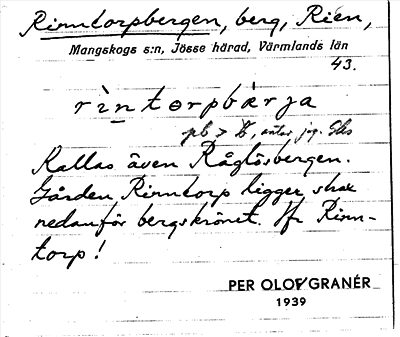 Rinntorpbergen, berg, Rien,
Mangskogs s:n, Jösse härad, Värmlands län
43.
rìntorpbærja
pb > b, antar jag.
Kallas även Råglösbergen.
Gården Rinntorp ligger strax
nedanför bergskrönet. Jfr Rinn-
torp!
PER OLOF GRANÉR
1939